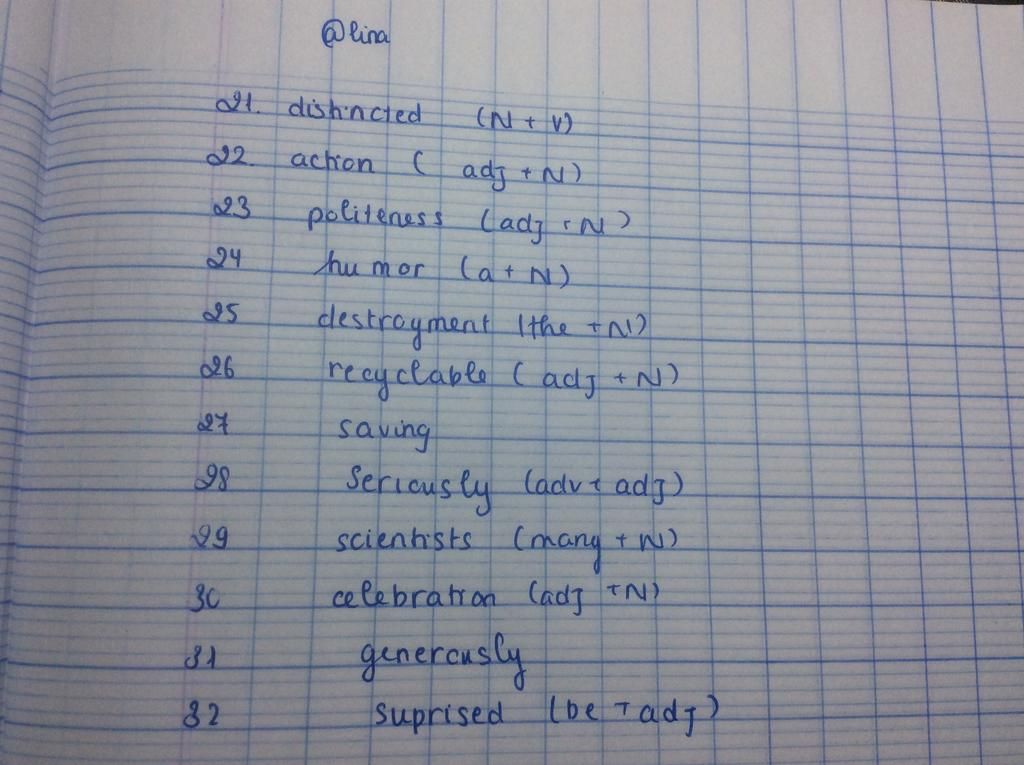 @lina
21. distincted (N + V)
22. action ( adj + N)
23 politeness (adj + N)
24 humor (a + N)
25 destroyment (the + N)
26 recyclable ( adj + N)
27 saving
28 Seriously (adv + adj)
29 scientists (many + N)
30 celebration (adj + N)
31 generously
32 suprised (be + adj)